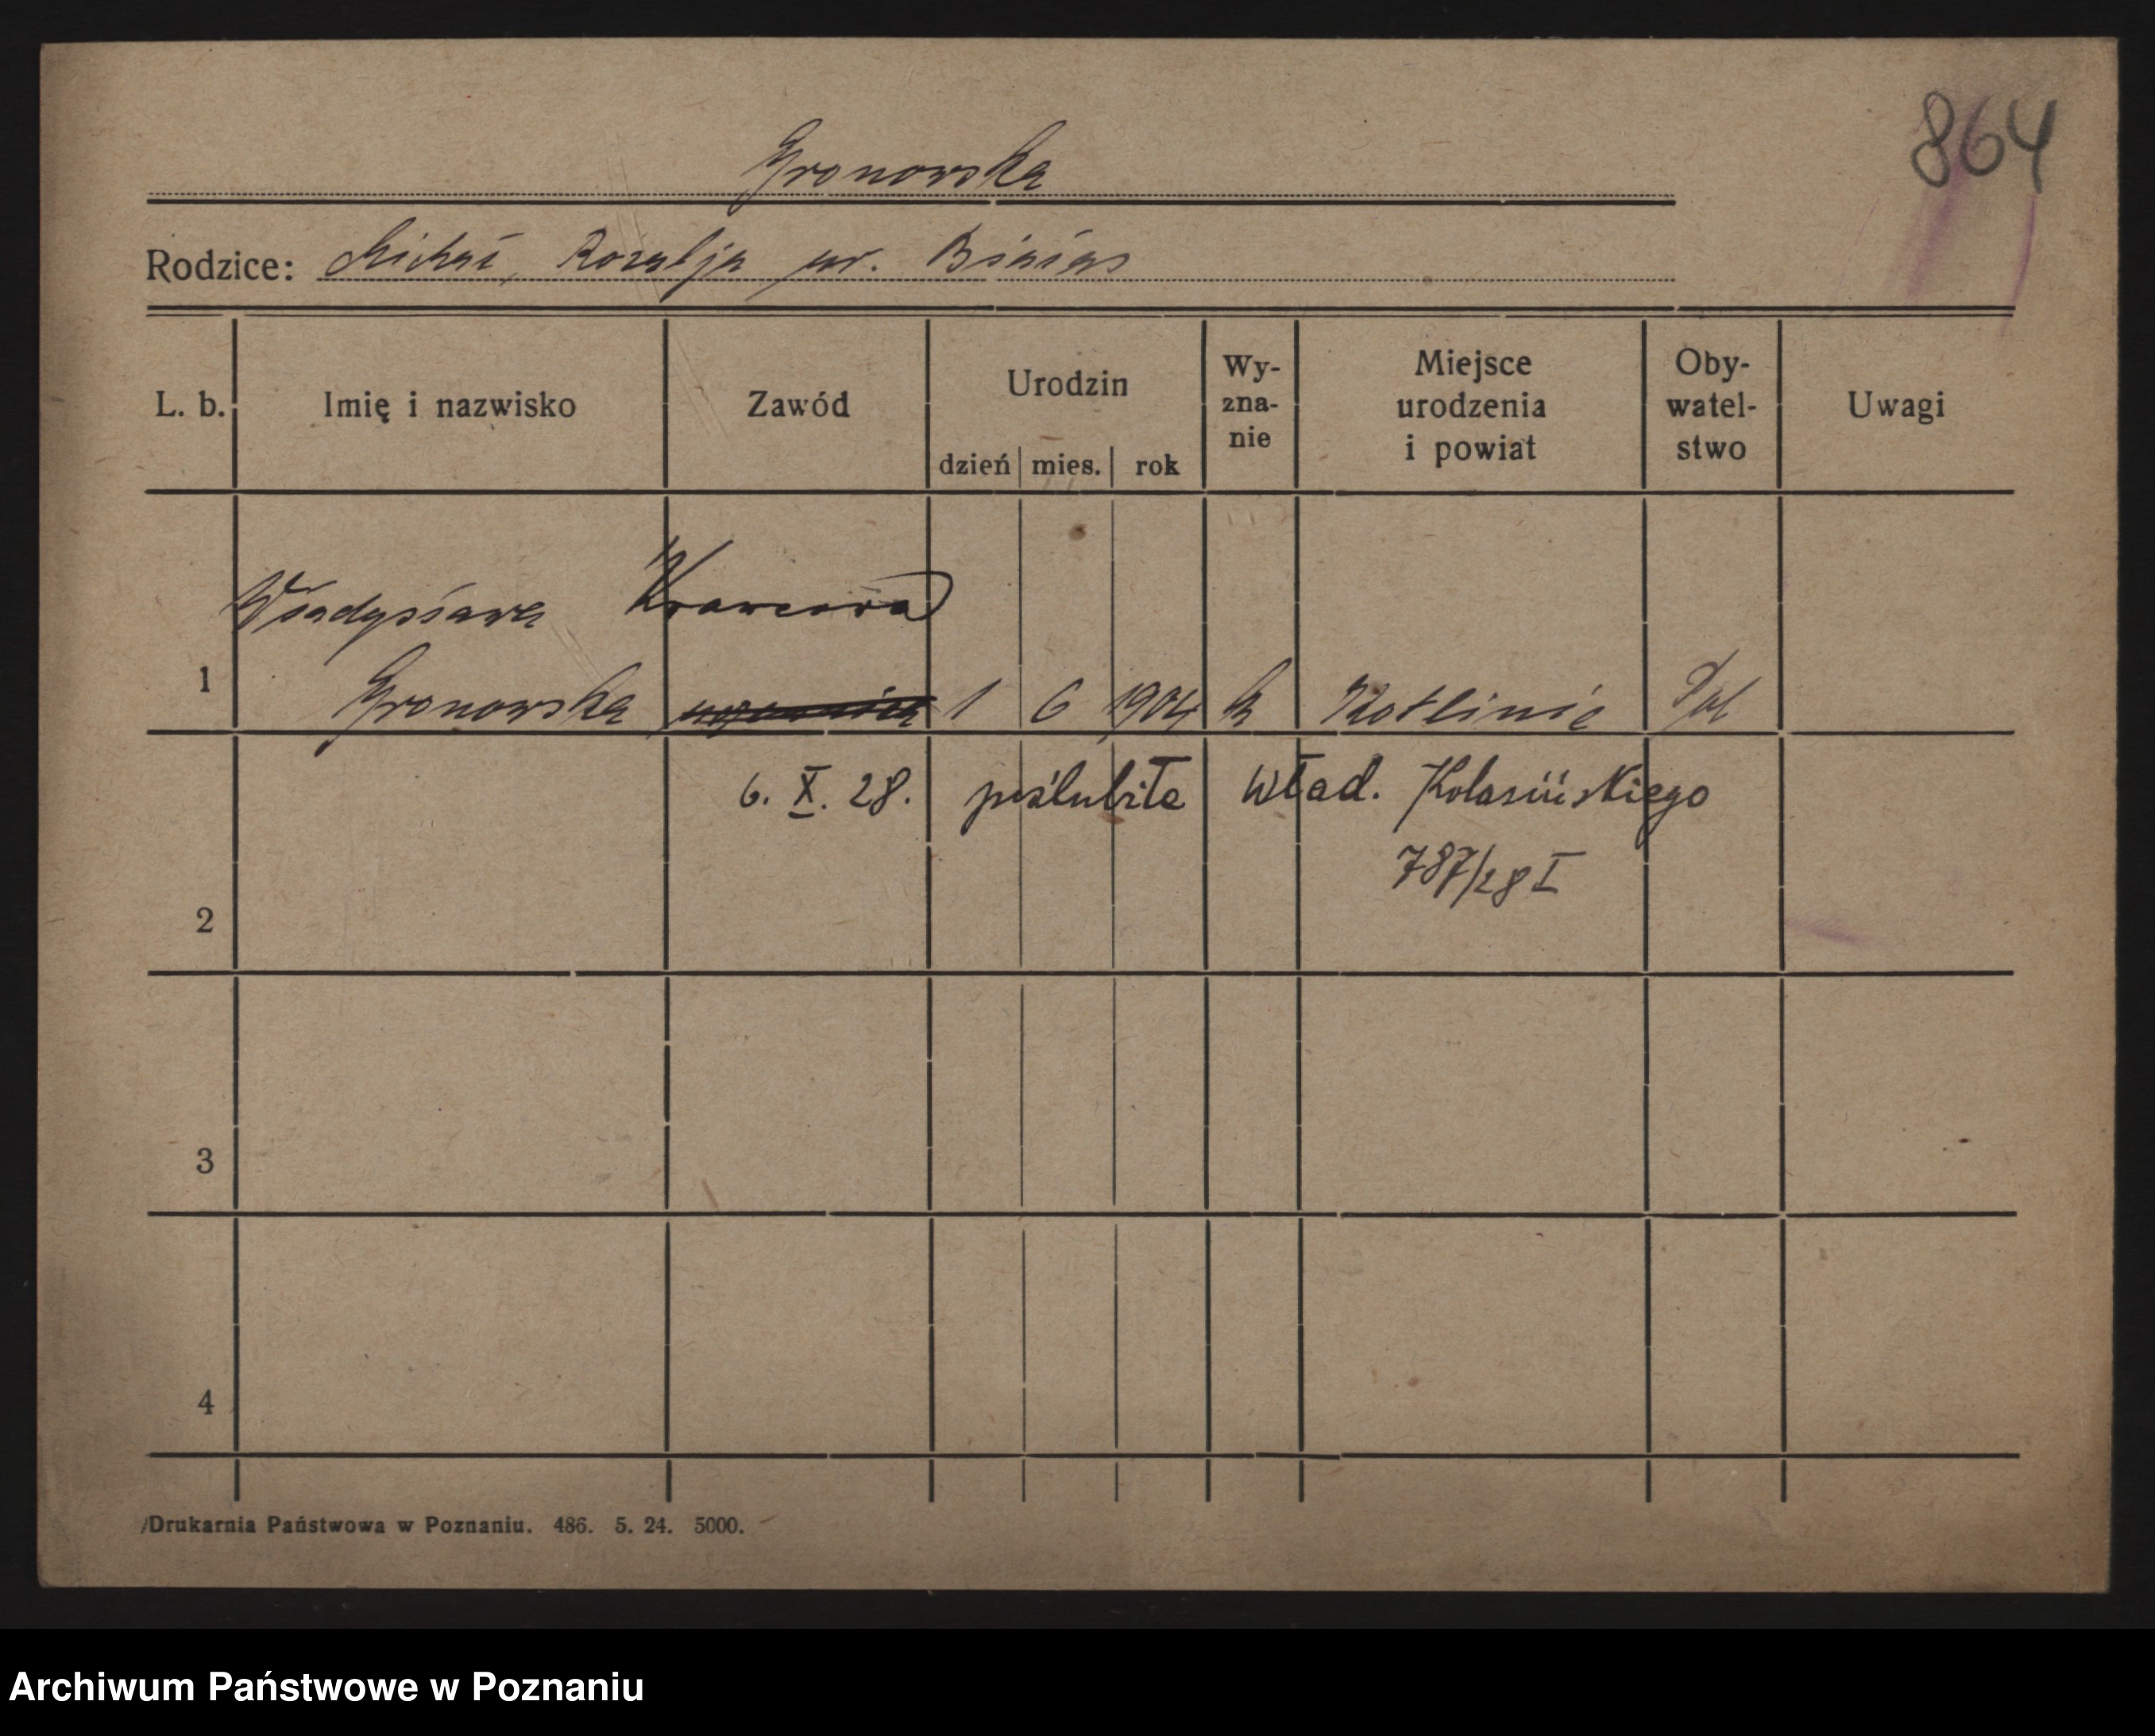 864
Gronowska
Rodzice: Michał, Rozalja ur. Białas
L. b. Imię i nazwisko Zawód Urodzin dzień mies. rok Wy-zna-nie Miejsce urodzenia i powiat Oby-watel-stwo Uwagi
Władysława Krawcowa
1 Gronowska 1 6 1904 k Kotlinie Pol
6. X. 28. poślubiła Wład. Kolasińskiego
787/28 I
2
3
4
Drukarnia Państwowa w Poznaniu. 486. 5. 24. 5000.
Archiwum Państwowe w Poznaniu